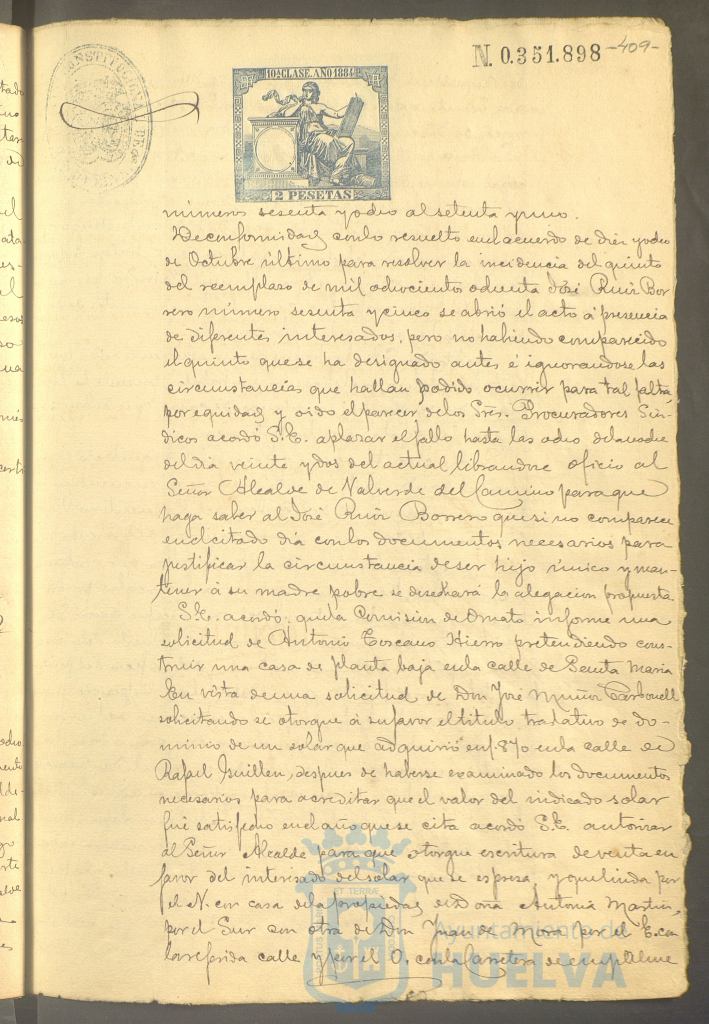 N. 0.351.898 -409-
CONSTITUCIONAL DE
10ª CLASE. AÑO 1884
2 PESETAS
números sesenta y ocho al setenta y uno.
De conformidad con lo resuelto en el acuerdo de diez y ocho
de Octubre último para resolver la incidencia del quinto
del reemplazo de mil ochocientos ochenta José Ruiz Bor
rero número sesenta y cinco se abrió el acto á presencia
de diferentes interesados, pero no habiendo comparecido
el quinto que se ha designado antes é ignorandose las
circunstancias que hallan podido ocurrir para tal falta
por equidad y oido el parecer de los Sres. Procuradores Sín-
dicos acordó S.E. aplazar el fallo hasta las ocho de la noche
del dia veinte y dos del actual librandose oficio al
Señor Alcalde de Valverde del Camino para que
haga saber al José Ruiz Borrero que si no comparece
en el citado dia con los documentos necesarios para
justificar la circunstancia de ser hijo único y man-
tener á su madre pobre se desechará la alegacion propuesta
S.E. acordó que la Comision de Ornato informe una
solicitud de Antonio Toscano Hierro pretendiendo cons-
truir una casa de planta baja en la calle de Benita Maria
En vista de una solicitud de Don José Muñoz Carbonell
solicitando se otorgue á su favor el titulo traslativo de do-
minio de un solar que adquirió en 1870 en la calle de
Rafael Guillen, despues de haberse examinado los documentos
necesarios para acreditar que el valor del indicado solar
fué satisfecho en el año que se cita acordó S.E. autorizar
al Señor Alcalde para que otorgue escritura de venta en
favor del interesado del solar que se espresa y que linda por
el N. con casa de la propiedad de Doña Antonia Martin,
por el Sur con otra de Don Juan de Mora por el E. con
la referida calle y por el O. con la Carretera de empalme
Ayuntamiento de
HUELVA